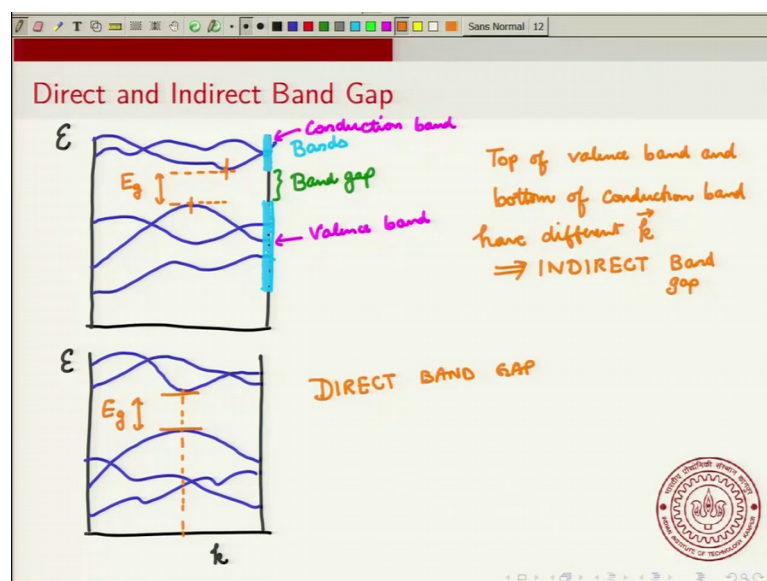 T
Sans Normal 12
Direct and Indirect Band Gap
ε
Conduction band
Bands
Eg
Band gap
Valence band
Top of valence band and
bottom of conduction band
have different k
⇒ INDIRECT Band
gap
ε
Eg
DIRECT BAND GAP
k
INDIAN INSTITUTE OF TECHNOLOGY KANPUR